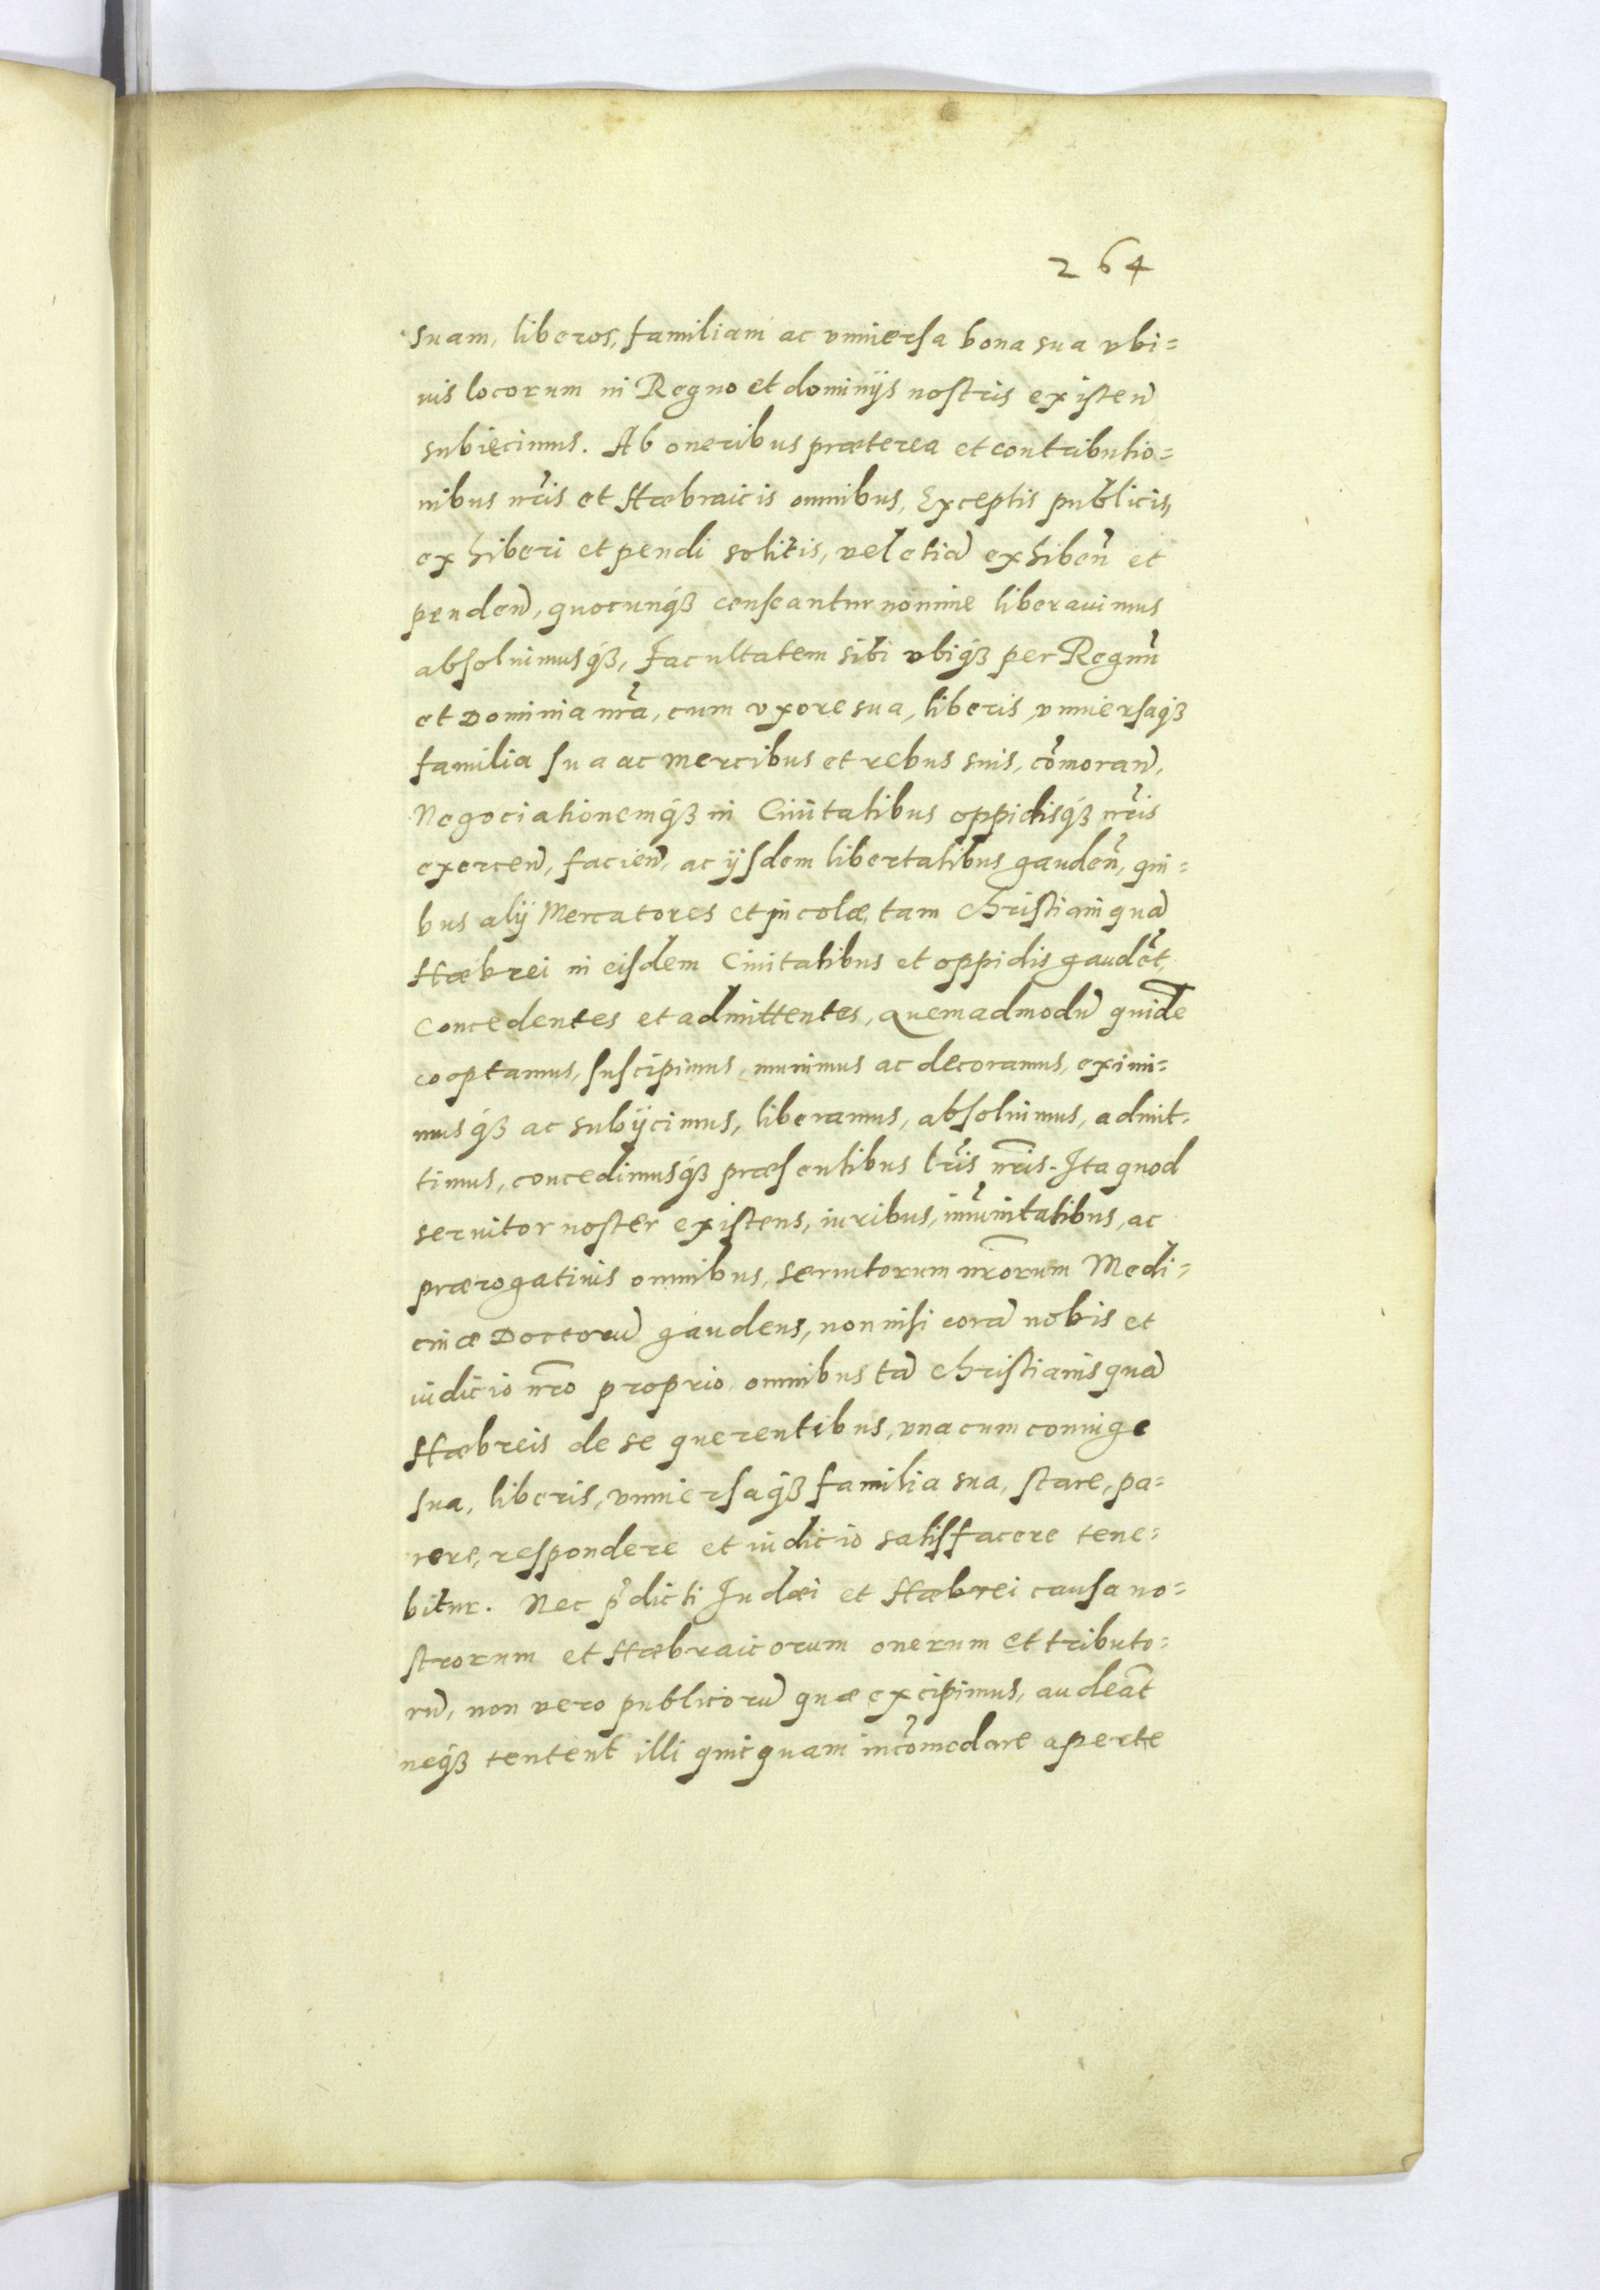 264
suam, liberos, familiam ac vniuersa bona sua vbi=
uis locorum in Regno et dominijs nostris existen̄
subiecimus. Ab oneribus præterea et contributio=
nibus nr̄is et Hæbraicis omnibus, Exceptis publicis,
exhiberi et pendi solitis, vel etiā exhiben̄ et
penden̄, quocunqꝫ censeantur nomine liberauimus
absoluimusqꝫ, Facultatem sibi vbiqꝫ per Regnū
et Dominia nr̄a, cum vxore sua, liberis, vniuersaqꝫ
familia sua ac mercibus et rebus suis, cōmoran̄,
Negociationemqꝫ in Ciuitatibus oppidisqꝫ nr̄is
exercen̄, facien̄, ac ijsdem libertatibus gauden̄, qui=
bus alij Mercatores et incolæ, tam Christiani quā
Hæbrei in eisdem Ciuitatibus et oppidis gaudēt,
Concedentes et admittentes, quemadmodū quidē
cooptamus, suscipimus, munimus ac decoramus, eximi=
musqꝫ ac subijcimus, liberamus, absoluimus, admit=
timus, concedimusqꝫ præsentibus lr̄is nr̄is. Ita quod
seruitor noster existens, iuribus, im̄unitatibus, ac
prærogatiuis omnibus, seruitorum nr̄orum Medi=
cinæ Doctorū gaudens, non nisi corā nobis et
iudicio nr̄o proprio, omnibus tā Christianis quā
Hæbreis de se querentibus, vna cum coniuge
sua, liberis, vniuersaqꝫ familia sua, stare, pa=
rere, respondere et iudicio satisfacere tene=
bitur. Nec p̄dicti Iudæi et Hæbrei causa no=
strorum et Hæbraicorum onerum et tributo=
rū, non vero publicorū quæ excipimus, audeāt
neqꝫ tentent illi quicquam incōmodare aperte